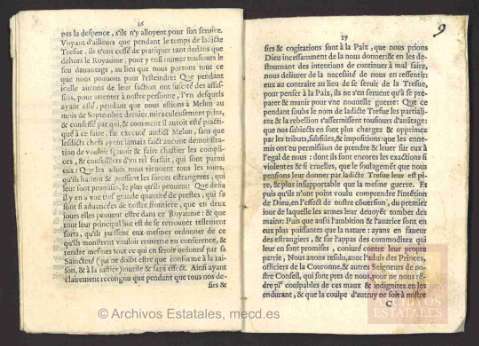 16
pas la despence, s'ils n'y alloyent pour son seruice.
Voyant d'ailleurs que pendant le temps de ladicte
Trefue, ils n'ont cessé de pratiquer tant dedans que
dehors le Royaume, pour y restituer tousiours le
feu dauantage, au lieu que nous portons tout ce
que nous pouuons pour l'esteindre: Que pendant
icelle aucuns de leur faction ont suscité des assas-
sins, pour attenter à nostre personne, l'vn desquels
ayant esté, pendant que nous estions à Melun au
mois de Septembre dernier, miraculeusement prins,
& confessé par qui, & comment il auroit esté practi-
qué à ce faire, fut executé audict Melun, sans que
lesdicts chefs ayent iamais faict aucune demonstra-
tion de vouloir sçauoir & faire chastier les compli-
ces, & conseillers d'vn tel forfait, qui sont parmi
eux: Que les aduis nous viennent tous les iours,
qu'ils hastent & pressent les forces estrangeres, qui
leur sont promises, le plus qu'ils peuuent: Que desia
il y en a vne tres grande quantité de prestes, qui sa
sont si aduancées de nostre frontiere, que en deux
iours elles peuuent estre dans ce Royaume: & que
tout leur principal but est de se renouueller tellement
forts, qu'ils puissent eux mesmes ordonner de ce
qu'ils monstrent vouloir remettre en conference, &
rendre mesmes tout ce qui en seroit ordonné par sa
Saincteté (qui ne doibt estre que conforme à la rai-
son, & à la iustice) inutile & sans effect. Ainsi ayant
clairement recongnu que pendant que tous nos de-
sirs &
17
9
sirs & cogitations sont à la Paix, que nous prions
Dieu incessamment de la nous donner: & en les de-
stournant des intentions de continuer à mal faire,
nous deliurer de la necessité de nous en ressentir:
eux au contraire au lieu de se seruir de la Trefue,
pour penser à la Paix, ils ne s'en seruent qu'à se pre-
parer & munir pour vne nouuelle guerre: Que ce
pendant soubs le nom de ladicte Trefue les partiali-
tez & la rebellion s'affermissent tousiours d'auantage:
que nos subiects en sont plus chargez & opprimez
par les tributs, subsides, & impositions que les enne-
mis ont eu permission de prendre & leuer sur eux à
l'egal de nous: dont ils sont encores les exactions si
violentes & si cruelles, que le soulagement que nous
pensions leur donner par ladicte Trefue leur est pi-
re, & plus insupportable que la mesme guerre. Et
puis qu'ils n'ont point voulu comprendre l'intention
de Dieu, en l'effect de nostre conuersion, du premier
iour de laquelle les armes leur deuoyent tomber des
mains: Puis que aussi l'ambition & l'auarice sont en
eux plus puissantes que la nature: ayans en faueur
des estrangers, & sur l'appas des commoditez qui
leur en sont promises, coniuré contre leur propre
patrie, Nous auons resolu, auec l'aduis des Princes,
officiers de la Couronne, & autres Seigneurs de no-
stre Conseil, qui sont pres de nous, pour ne nous ren-
dre plus coulpables de ces maux & indignitez en les
endurant, & que la coulpe d'autruy ne soit à nostre
C
© Archivos Estatales, mecd.es
ARCHIVOS
ESTATALES